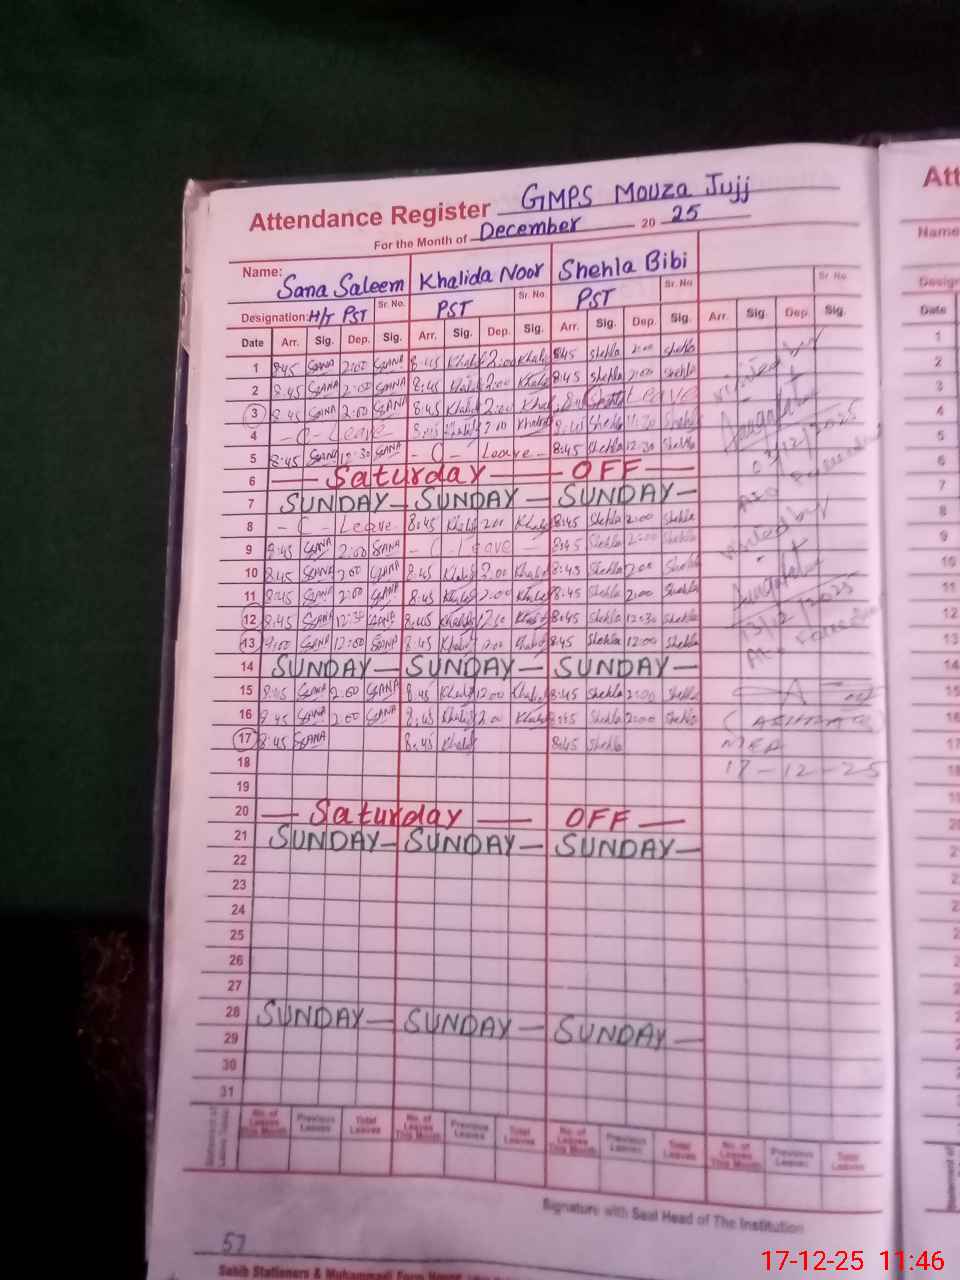 Attendance Register GMPS Mouza Jujj
For the Month of December 20 25
Name: Sana Saleem Khalida Noor Shehla Bibi
Designation: H/T PST Sr. No. PST Sr. No. PST Sr. No. Sr. No.
Date Arr. Sig. Dep. Sig. Arr. Sig. Dep. Sig. Arr. Sig. Dep. Sig. Arr. Sig. Dep. Sig.
1 8:45 SANA 2:00 SANA 8:45 Khalid 2:00 Khalid 8:45 Shehla 2:00 Shehla
2 8:45 SANA 2:00 SANA 8:45 Khalid 2:00 Khalid 8:45 Shehla 2:00 Shehla
3 8:45 SANA 2:00 SANA 8:45 Khalid 2:00 Leave
4 - C - Leave 8:45 Khalid 2:00 Khalid 8:45 Shehla Shehla
5 8:45 SANA 12:30 SANA - C - Leave - 8:45 Shehla 12:30 Shehla
6 Saturday OFF
7 SUNDAY SUNDAY SUNDAY
8 - C - Leave 8:45 Khalid 2:00 Khalid 8:45 Shehla 2:00 Shehla
9 8:45 SANA 2:00 SANA - C - Leave - 8:45 Shehla 2:00 Shehla
10 8:45 SANA 2:00 SANA 8:45 Khalid 2:00 Khalid 8:45 Shehla 2:00 Shehla
11 8:45 SANA 2:00 SANA 8:45 Khalid 2:00 Khalid 8:45 Shehla 2:00 Shehla
12 8:45 SANA 12:30 SANA 8:45 Khalid 12:30 Khalid 8:45 Shehla 12:30 Shehla
13 9:00 SANA 12:00 SANA 8:45 Khalid 12:00 Khalid 8:45 Shehla 12:00 Shehla
14 SUNDAY SUNDAY SUNDAY
15 8:45 SANA 2:00 SANA 8:45 Khalid 2:00 Khalid 8:45 Shehla 2:00 Shehla
16 8:45 SANA 2:00 SANA 8:45 Khalid 2:00 Khalid 8:45 Shehla 2:00 Shehla
17 8:45 SANA 8:45 Khalid 8:45 Shehla
18
19
20 Saturday OFF
21 SUNDAY SUNDAY SUNDAY
22
23
24
25
26
27
28 SUNDAY SUNDAY SUNDAY
29
30
31
visited by
03/12/2025
visited by
13/12/2025
MEA
17-12-25
No. of Leaves This Month Previous Leaves Total Leaves No. of Leaves This Month Previous Leaves Total Leaves No. of Leaves This Month Previous Leaves Total Leaves No. of Leaves This Month Previous Leaves Total Leaves
Signature with Seal Head of The Institution
57
Att
Name
Design
Date
17-12-25 11:46